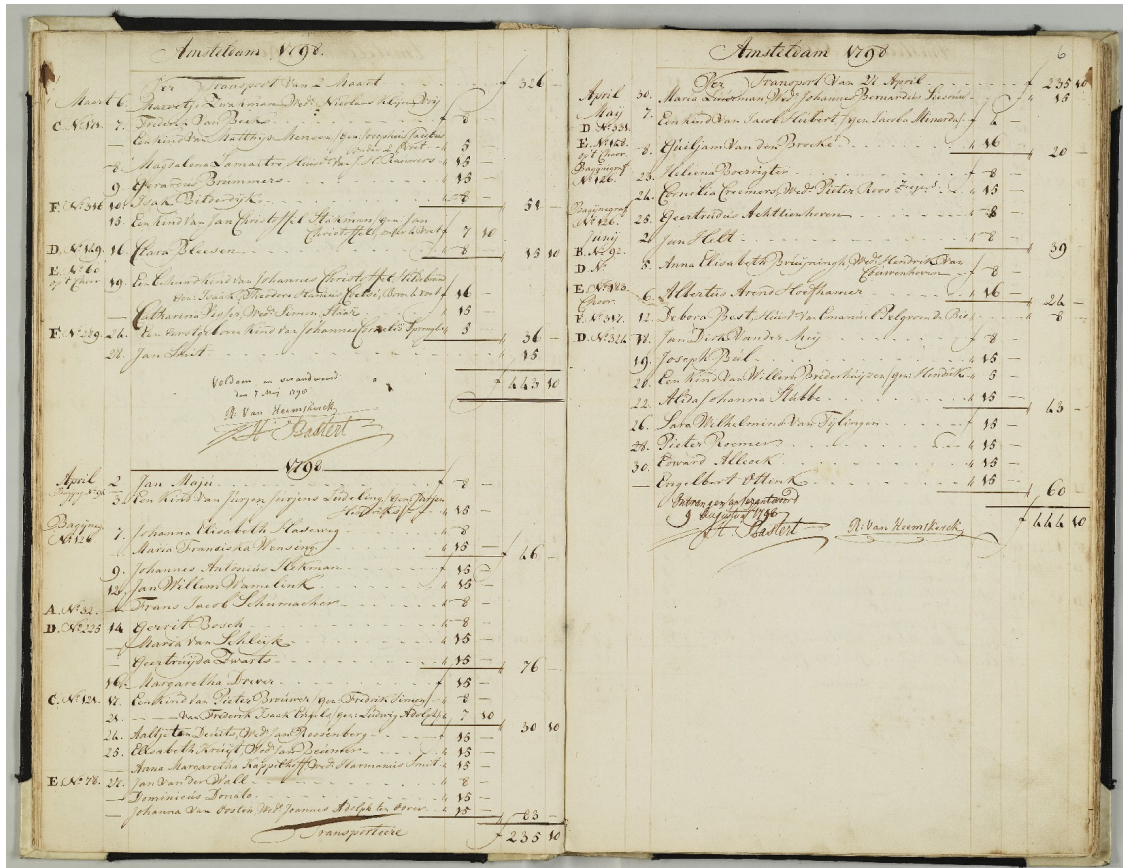 Amsteldam 1798.
Per Transport van 2 Maart - - - f 326 -
Maart 6. Marretje Zwakman Wed: Nicolaas Kleijn Vrij
C. No 7. Frederik Van Beek - f 8 -
— Een Kind van Matthijs Mensen /gen: Josephus Jacobus
" 5 -
8. Magdalena Lamaitre Huisv: Van J. H. Rauwers " 15 -
9. Gerardus Brummers " 15 -
F. No 316 10. Isak Bilderdijk " 8 - 51 -
15. Een Kind van Jan Christoffel Stakman, gen: Jan
Christoffel, f 7 10
D. No 149. 16. Clara Bleesen " 8 - " 15 10
E. No 60
op 't Choor. 19. Een Kind van Johannes Christoffel
Isaak Theodore f 16 -
— Catharina Visser, Wed: Simon Staar " 15 -
F. No 229. 26. Een Kind van Johannes Cornelis " 5 - " 36 -
Jan Smit " 15 -
f 443 10
Voldaan en verantwoord
den 7 Meij 1798
R: Van Heemskerck
H Bastert
1798
April 2 Jan Majii f 8 -
3. Een Kind van Jurjen Jurjens Ludeling /gen: Jurjen
" 15 -
Bagijnegraf
No 126 7. Johanna Elisabeth Haseweg " 8 -
— Maria Franciska Wensing " 15 - " 46 -
9. Johannes Antonius Hekman f 15 -
12. Jan Willem Wamelink " 15 -
A. No 32. — Frans Jacob Schumacher " 8 -
D. No 225 14 Gerrit Bosch " 8 -
— Maria van Schleik " 15 -
— Geertruijda Zwarts " 15 - " 76 -
16. Margaretha Drever f 15 -
C. No 121. 17. Een Kind van Pieter Brouwer /gen: Fredrik Simon/ " 8 -
21. — van Frederik Isaak Engels /gen: Ludwig Adolph/ " 7 10 " 30 10
24. Aaltje ten Deuits, Wed: Jan Roosenberg f 15 -
25. Elisabeth Kruijt, Wed: Van Beumer " 15 -
— Anna Margaretha Kappelhoff Wed: Harmanus Smit " 15 -
E. No 78. 27. Jan van der Wall " 8 -
— Dominicus Donato " 15 -
— Johanna Van Oosten, Wed: Joannes Adolph ten Oever " 15 - " 83 -
Transporteere f 235 10
6
Amsteldam 1798
Per Transport Van 27 April f 235 10
April 30. Maria Wed: Johannes Bernardus " 15 -
Maij 7. Een Kind van Jacob Hubert, /gen: Jacoba Minarda/ f 4 -
D. No 331.
E. No 128.
op 't Choor. 8. Guiljam Van den Broeke " 16 - " 20 -
Bagijnegraf
No 126. 23. Helena Boerrigter f 8 -
24. Cornelia Creemers, Wed: Pieter Roos " 15 -
Bagijnegraf
No 126. 25. Geertruidus Achttienhoven " 8 -
Junij 2. Jan Helt " 8 - " 39 -
B. No 92.
D. No 5. Anna Elisabeth Bruijningh, Wed: Hendrik Van
Couwenhoven f 8 -
E. No 183
Choor. 6. Albertus Arend Hoofthamer " 16 - " 24 -
F. No 317. 12. Debora Best, Huisv: Van Emanuel Pelgrom de Bie " 8 -
D. No 321. Jan Dirk Vander Meij f 8 -
19. Joseph Bul " 15 -
20. Een Kind van Willem Brederhuijzen /gen: Hendrik " 5 -
22. Alida Johanna Stubbe " 15 - " 43 -
26. Sara Wilhelmina van Tijlingen f 15 -
28. Pieter Roemer " 15 -
30. Edward Allcock " 15 -
— Engelbert Ottink " 15 - " 60 -
f 444 10
Ontvangen en verantwoord
9 Augustus 1798
H Bastert R: van Heemskerck